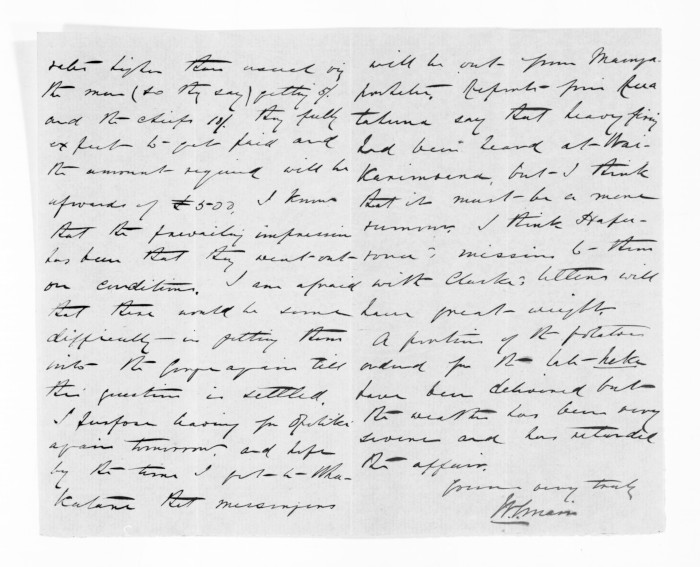 rates higher than usual viz
the men (so they say) getting 8/.
and the chiefs 10/. They fully
expect to get paid and
the amount required will be
upwards of £500. I know
that the prevailing impression
has been that they went out
on conditions. I am afraid
that there would be some
difficulty in getting them
into the Gorge again till
this question is settled.
I purpose leaving for Opotiki
again tomorrow and hope
by the time I get to Wha-
katane that messengers
will be out from Maunga-
pohatu. Reports from Rua
tahuna say that heavy firing
had been heard at Wai-
Karimoana, but I think
that it must be a mere
rumour. I think
mission to them
with Clarke's letters will
have great weight
A portion of the potatoes
ordered for the late
have been delivered but
the weather has been very
severe and has retarded
the affair.
Yours very truly